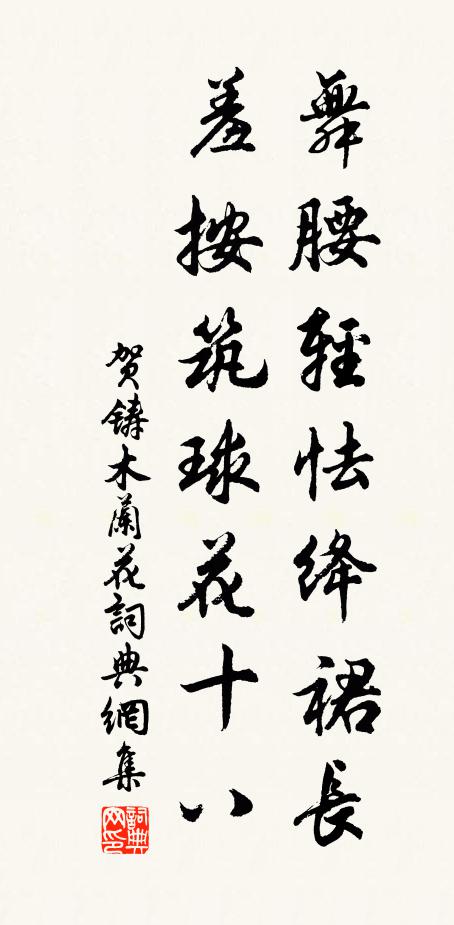 舞腰輕怯绛裙長
羞按筑球花十八
贺铸木蘭花詞典網集
詞典网印